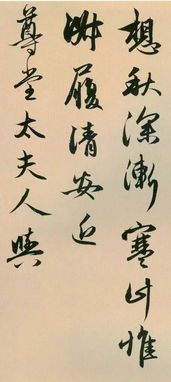 想秋深漸寒惟
履清安近
尊堂太夫人與